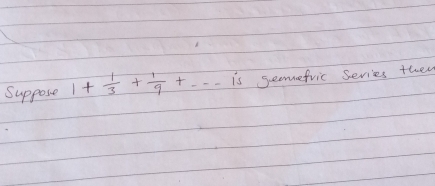 Suppose 1 + 1/3 + 1/9 + --- is geometric series then